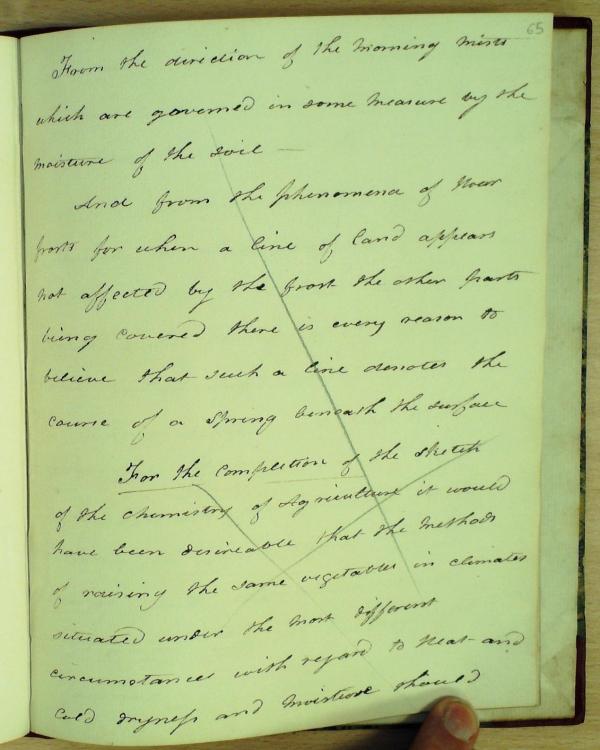 65
From the direction of the morning mists
which are governed in some measure by the
moisture of the soil —
And from the phenomena of Hoar
frosts for when a line of land appears
not affected by the frost the other parts
being covered there is every reason to
believe that such a line denotes the
course of a Spring beneath the surface
For the completion of the sketch
of the chemistry of Agriculture it would
have been desireable that the methods
of raising the same vegetables in climates
situated under the most different
circumstances with regard to Heat and
Cold dryness and moisture should